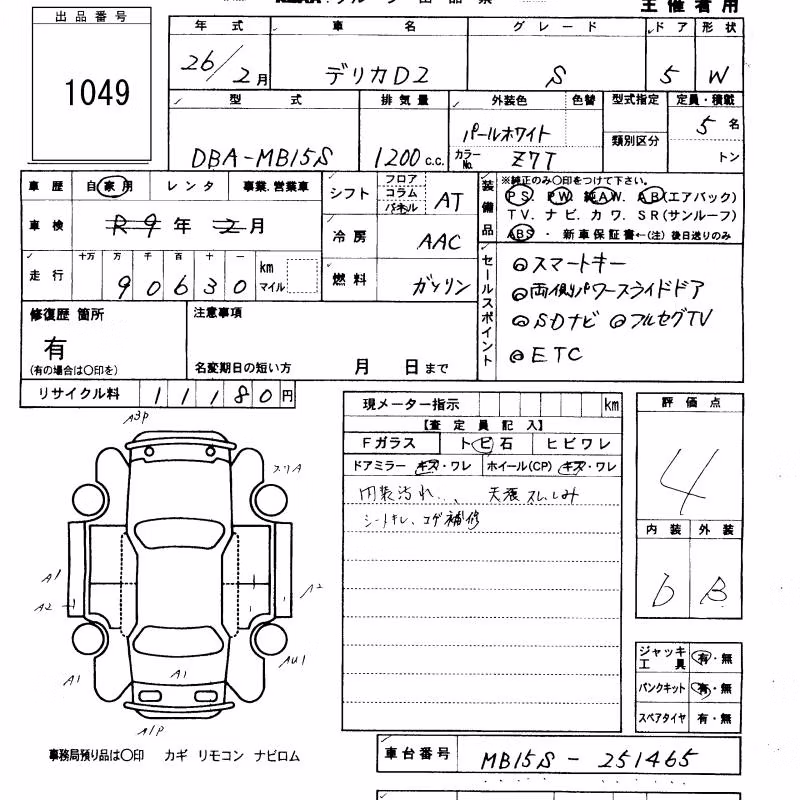 主催者用
出品番号
1049
年式 車名 グレード ドア 形状
26/2月 デリカD2 S 5 W
型式 排気量 外装色 色替 型式指定 定員・積載
DBA-MB15S 1200c.c. パールホワイト 5名
カラーNo. Z7T 類別区分 トン
車歴 自家用 レンタ 事業.営業車
車検 R9年2月
走行 十万 万 千 百 十 一
90630 km マイル
シフト フロア コラム パネル AT
冷房 AAC
燃料 ガソリン
装備品 ※純正のみ○印をつけて下さい。
PS. PW. 純AW. AB(エアバック)
TV. ナビ. カワ. SR(サンルーフ)
ABS ・ 新車保証書←(注) 後日送りのみ
セールスポイント
◎スマートキー
◎両側パワースライドドア
◎SDナビ ◎フルセグTV
◎ETC
修復歴 箇所
有
(有の場合は○印を)
注意事項
名変期日の短い方 月 日まで
リサイクル料 11180円
現メーター指示 km
【査定員記入】
Fガラス トビ石 ヒビワレ
ドアミラー キズ・ワレ ホイール(CP) キズ・ワレ
内装汚れ、、 天張スレ、しみ
シートキレ、コゲ補修
評価点
4
内装 外装
D B
ジャッキ工具 有・無
パンクキット 有・無
スペアタイヤ 有・無
A3P
スリA
A1
A2
A2
A1
A1
AU1
A1P
事務局預り品は○印 カギ リモコン ナビロム
車台番号 MB15S-251465